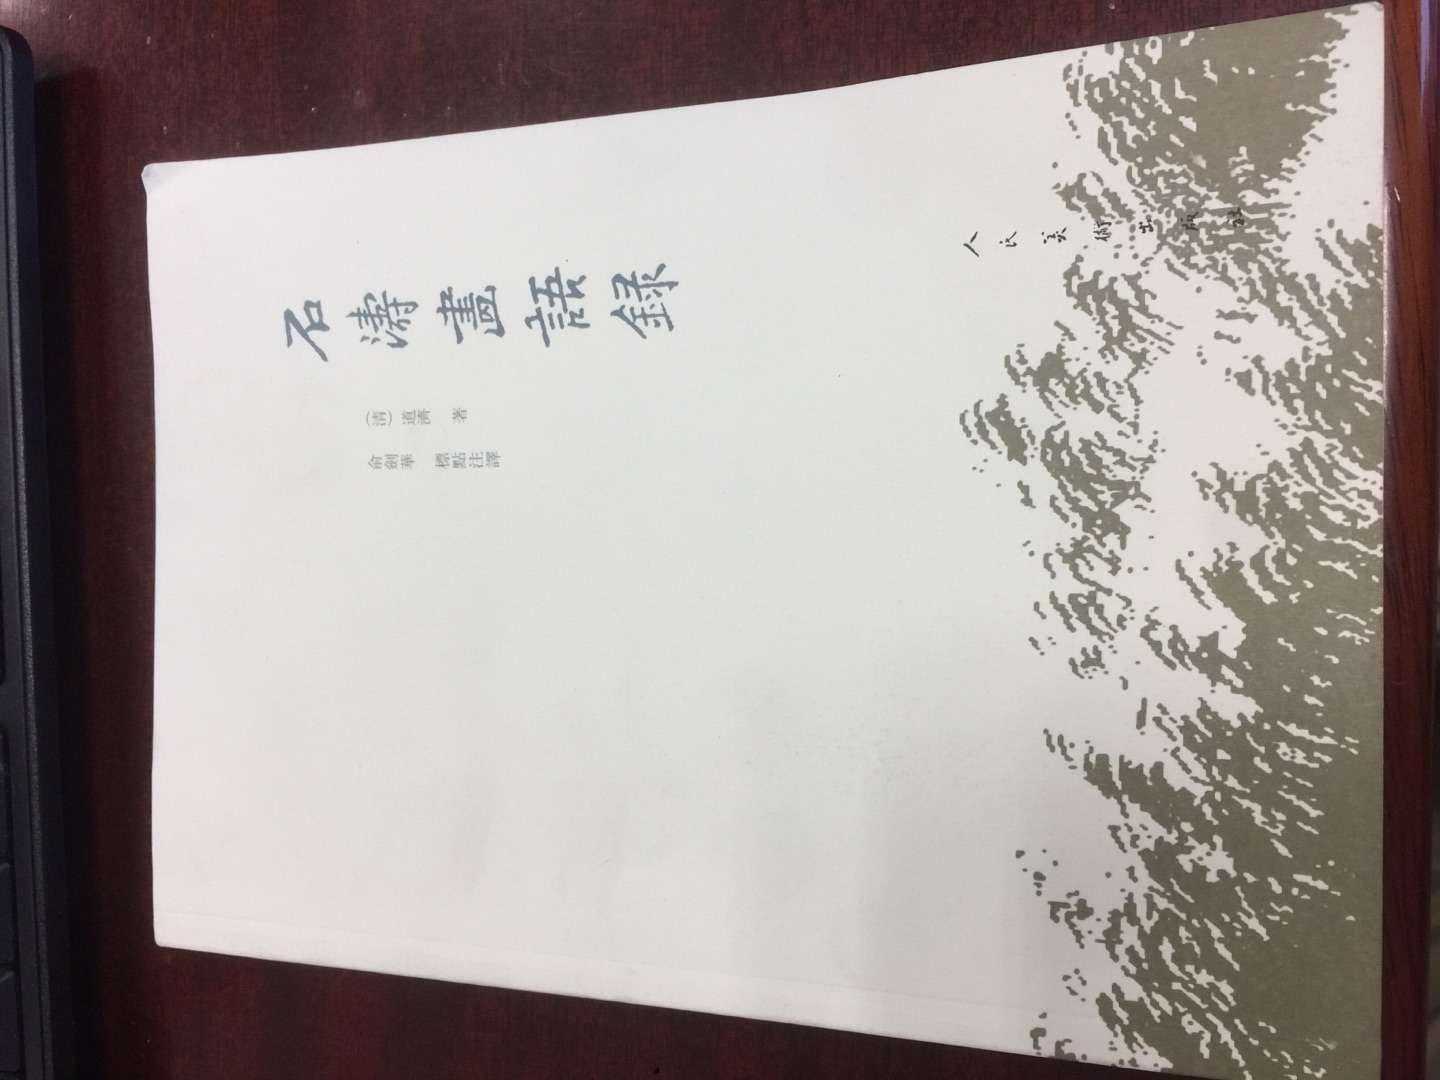 石濤畫語録
(清)道濟 著
俞劍華 標點注譯
人民美術出版社